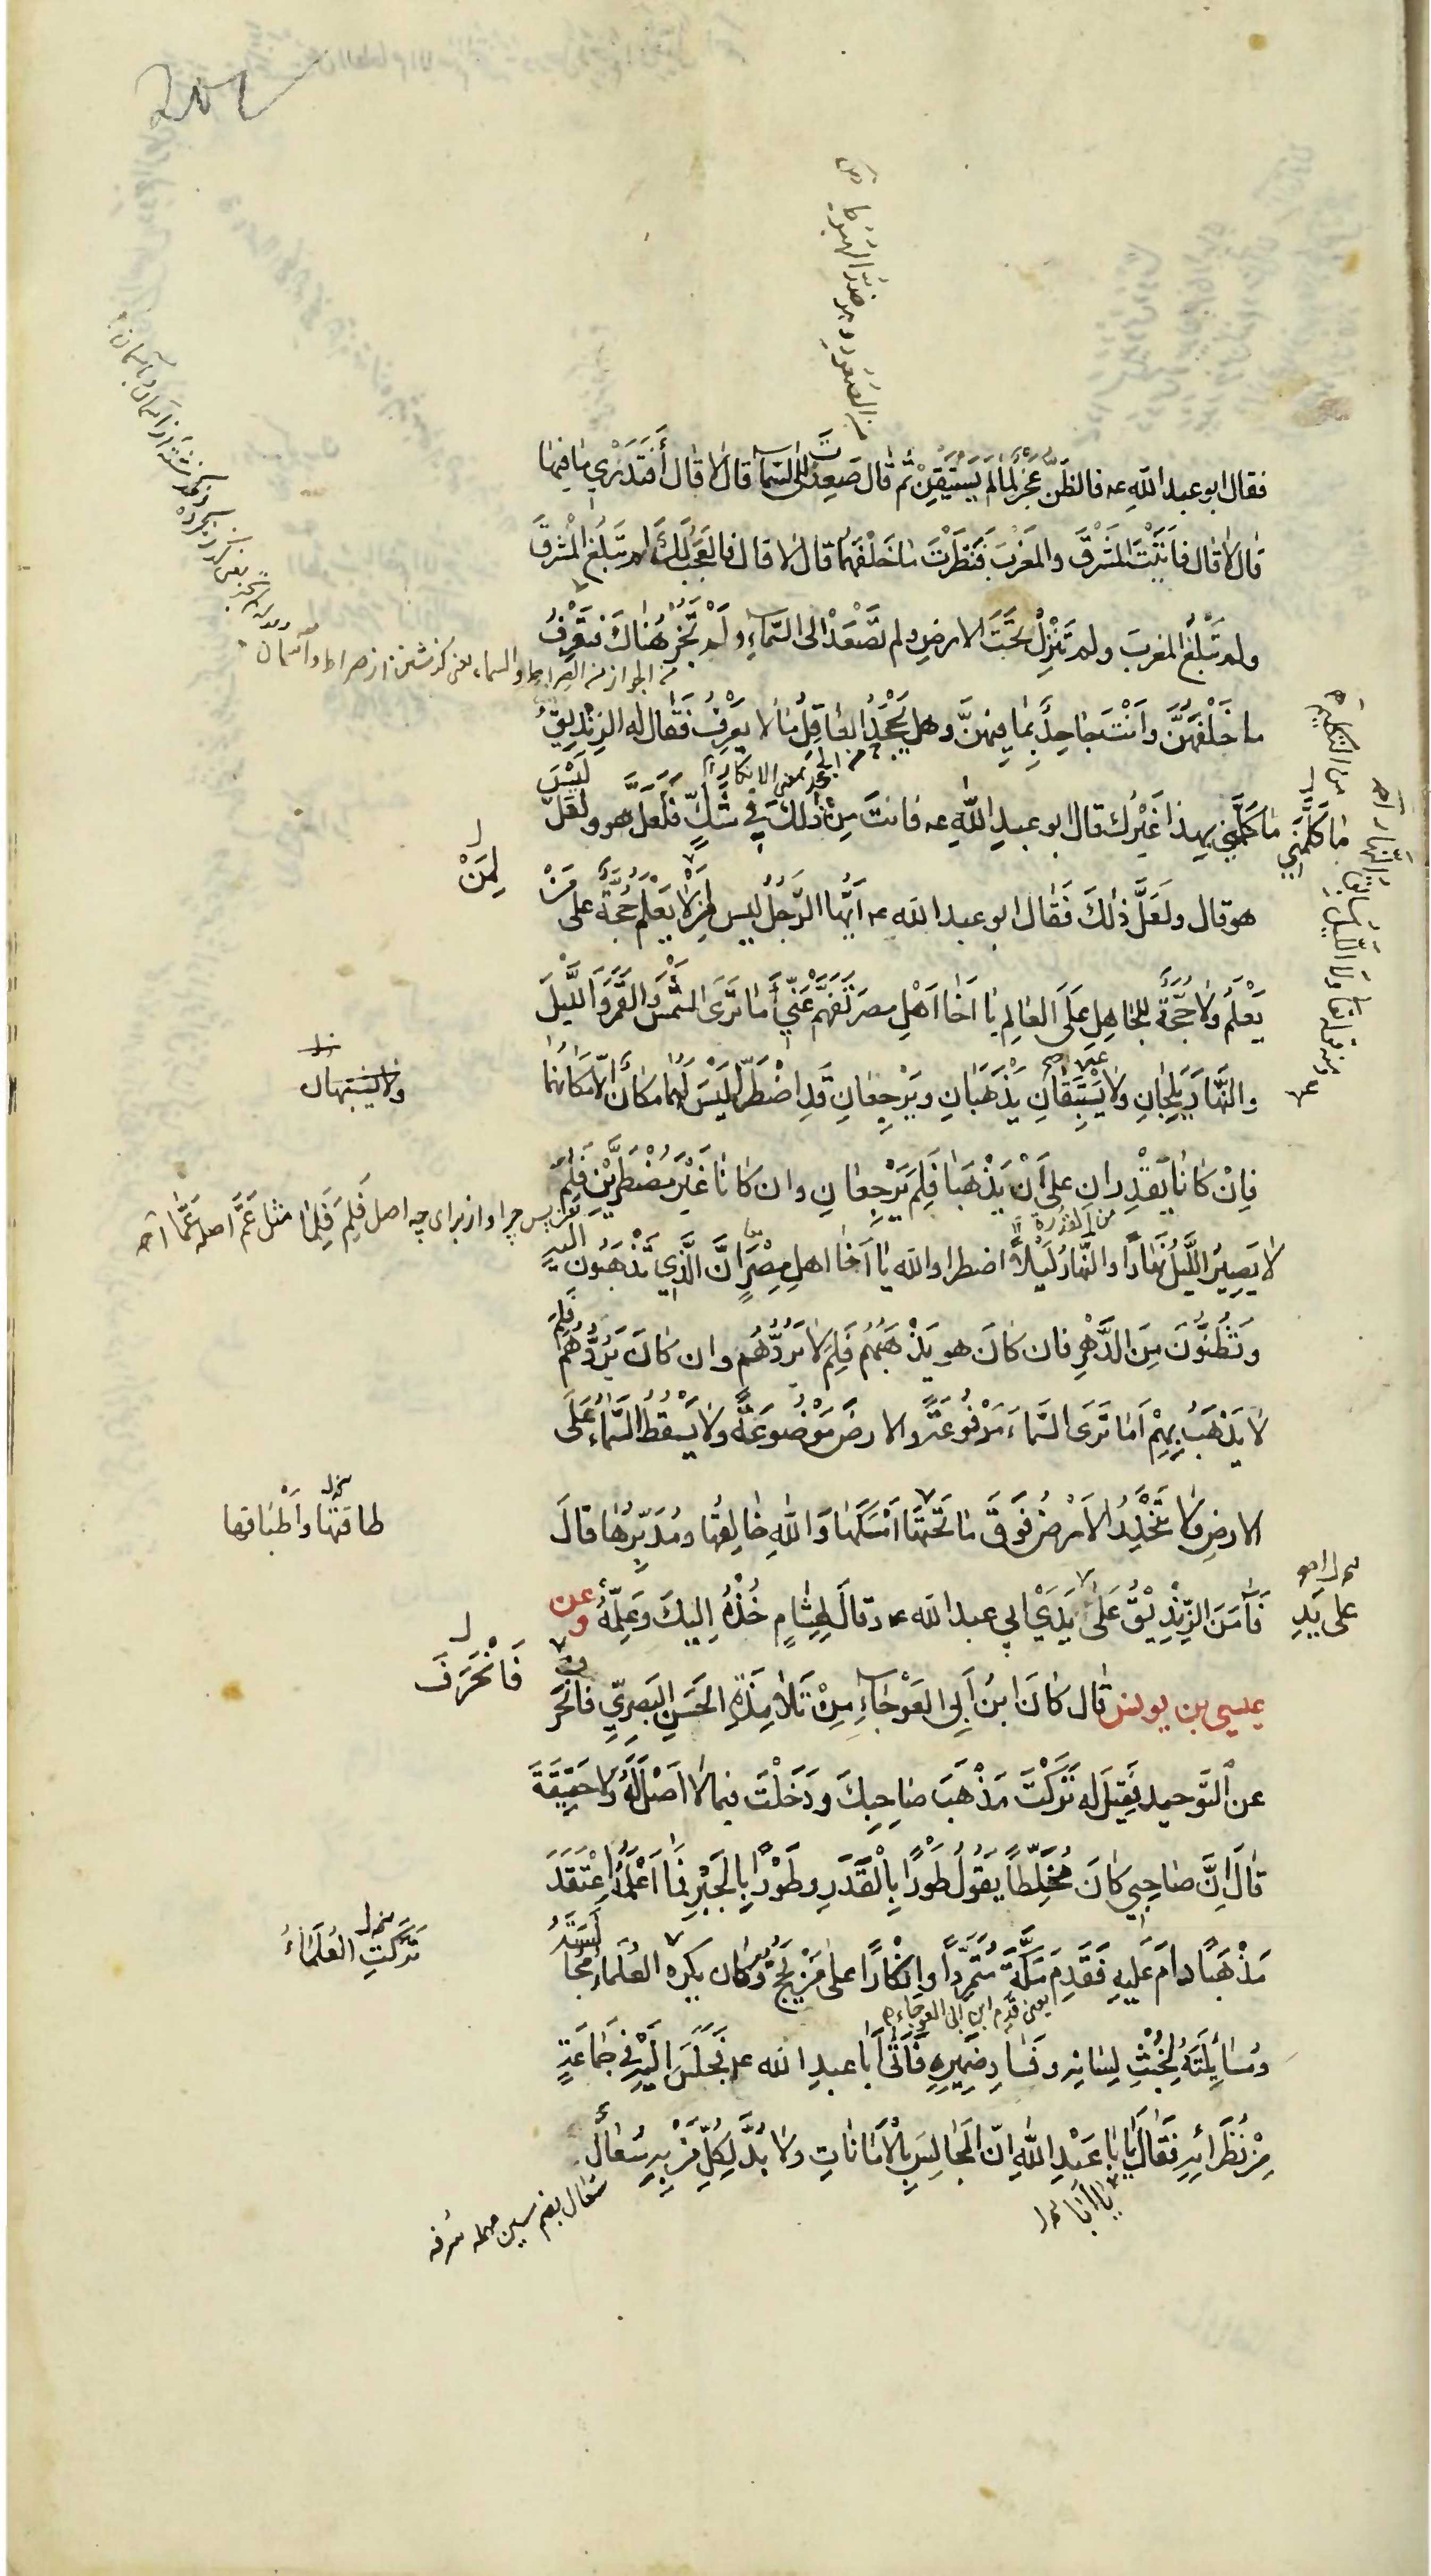 فقال ابو عبد الله عه فالظَّنُّ عَجْزٌ لِمَا لَمْ يَسْتَيْقِنْ ثم قال صَعِدْتَ الى السَّماء قال لا قال أَفَتَدْرِي ما فيها
قال لا قال فَاَتَيْتَ المَشْرِقَ والمَغْرِبَ فَنَظَرْتَ ما خَلْفَهُما قال لا قال فالعَجَبُ لَكَ لم تَبْلُغِ الْمشرقَ
ولم تَبْلُغِ المغربَ ولم تَنْزِلْ تَحْتَ الارضِ ولم تَصْعَدْ الى السَّماءِ ولَمْ تَجُزْ هُناكَ فتَعْرِفُ
من الجواز من الصراط والسماء يعنى كذشتن از صراط و آسمان
ما خَلْفَهُنَّ واَنْتَ جاحِدٌ بِما فيهِنَّ وهل يَجْحَدُ العاقِلُ ما لا يَعْرِفُ فقال له الزِنْدِيقُ
من الجحد بمعنى الانكار
ما كَلَّمَني بهذا غَيْرُكَ قال ابو عبدِ اللهِ عه فانتَ مِنْ ذلكَ في شَكٍّ فَلَعَلَّهُ هو ولَعَلَّ لَيْسَ
ما كَلَّمَني
هو قال ولَعَلَّ ذلكَ فَقال ابو عبد الله عه اَيُّها الرَّجُلُ ليس لِمَنْ لا يَعْلَمُ حُجَّةٌ على مَنْ
لِمَنْ
يَعْلَمُ ولا حُجَّةَ للجاهِلِ عَلَى العالِمِ يا اَخا اَهْلِ مصرَ تَفَهَّمْ عَنّي أما تَرَى الشَّمْسَ والقَمَرَ وَاللَّيلَ
والنَّهارَ يَلِجانِ ولا يَسْتَبِقانِ يَذْهَبانِ ويَرْجِعانِ قَدِ اضْطَرّا لَيْسَ لَهُما مَكانٌ إلّا مَكانُهُما
ولا يشتبهان
فاِنْ كانا يَقْدِرانِ على اَنْ يَذْهَبا فَلِمَ يَرْجِعانِ وان كانا غَيْرَ مُضْطَرَّيْنِ فَلِمَ
من القدرة
پس چرا و از برای چه اصل فَلِمَ فَلِما مثل عَمَّ اصله عَمّا
لا يَصيرُ اللَّيْلُ نهارًا والنَّهارُ لَيْلاً اضطرا والله يا اَخا اهلِ مِصْرَ اِنَّ الَّذِي تَذْهَبُونَ اليه
وتَظُنُّونَ مِنَ الدَّهْرِ فان كانَ هو يَذْهَبُهُم فَلِمَ لا يَرُدُّهُم وان كانَ يَرُدُّهُم فَلِمَ
لا يَذْهَبُ بِهِمْ اَما تَرَى السَّماءَ مَرْفُوعَةً والارضَ مَوْضُوعَةً ولا يَسْقُطُ السَّماءُ عَلَى
الارضِ ولا تَنْحَدِرُ الاَرْضُ فَوْقَ ما تَحْتَها اَمْسَكَها وَاللهِ خالِقُها ومُدَبِّرُها قالَ
طاقتها واَطْباقها
فَآمَنَ الزِّنْدِيقُ عَلى يَدَيْ ابي عبد الله عه وقالَ لِهِشامٍ خُذْهُ اِليكَ وعَلِّمْهُ وعن
على يَدِ
عيسى بن يونس قال كانَ ابنُ اَبِي العَوْجاءِ مِنْ تَلامِذَةِ الحَسَنِ البَصرِيِّ فانْحَرَفَ
فَانْحَرَفَ
عن التَّوحيد فقيلَ له تَرَكْتَ مَذْهَبَ صاحِبِكَ ودَخَلْتَ فيما لا اَصْلَ لَهُ ولا حَقِيقَةَ
قالَ اِنَّ صاحِبي كانَ مُخَلِّطاً يَقُولُ طَوْرًا بِالْقَدَرِ وطَوْرًا بِالجَبْرِ فَما اَعْلَمُهُ اعْتَقَدَ
مَذْهَباً دامَ عَليهِ فَقَدِمَ مَكَّةَ مُتَمَرِّداً وانْكارًا على مَنْ يَحُجُّ وكان يكره العُلَماءُ مُجالَسَتَهُ
تَركت العُلَماءُ
يعنى قَدِم ابن ابى العوجاء
ومُسائِلَتَهُ لِخُبْثِ لِسانِهِ وفَسادِ ضَمِيرِهِ فَأَتى اَبا عبدِ الله عه فَجَلَسَ اِلَيْهِ في جَماعَةٍ
مِنْ نُظَرائِهِ فَقالَ يا ابا عَبْدِ اللهِ انّ المَجالِسَ بِالْأَماناتِ ولا بُدَّ لِكُلِّ مَنْ بِهِ سُعالٌ
يا أبا
سعال بضم سين مهمله سرفه